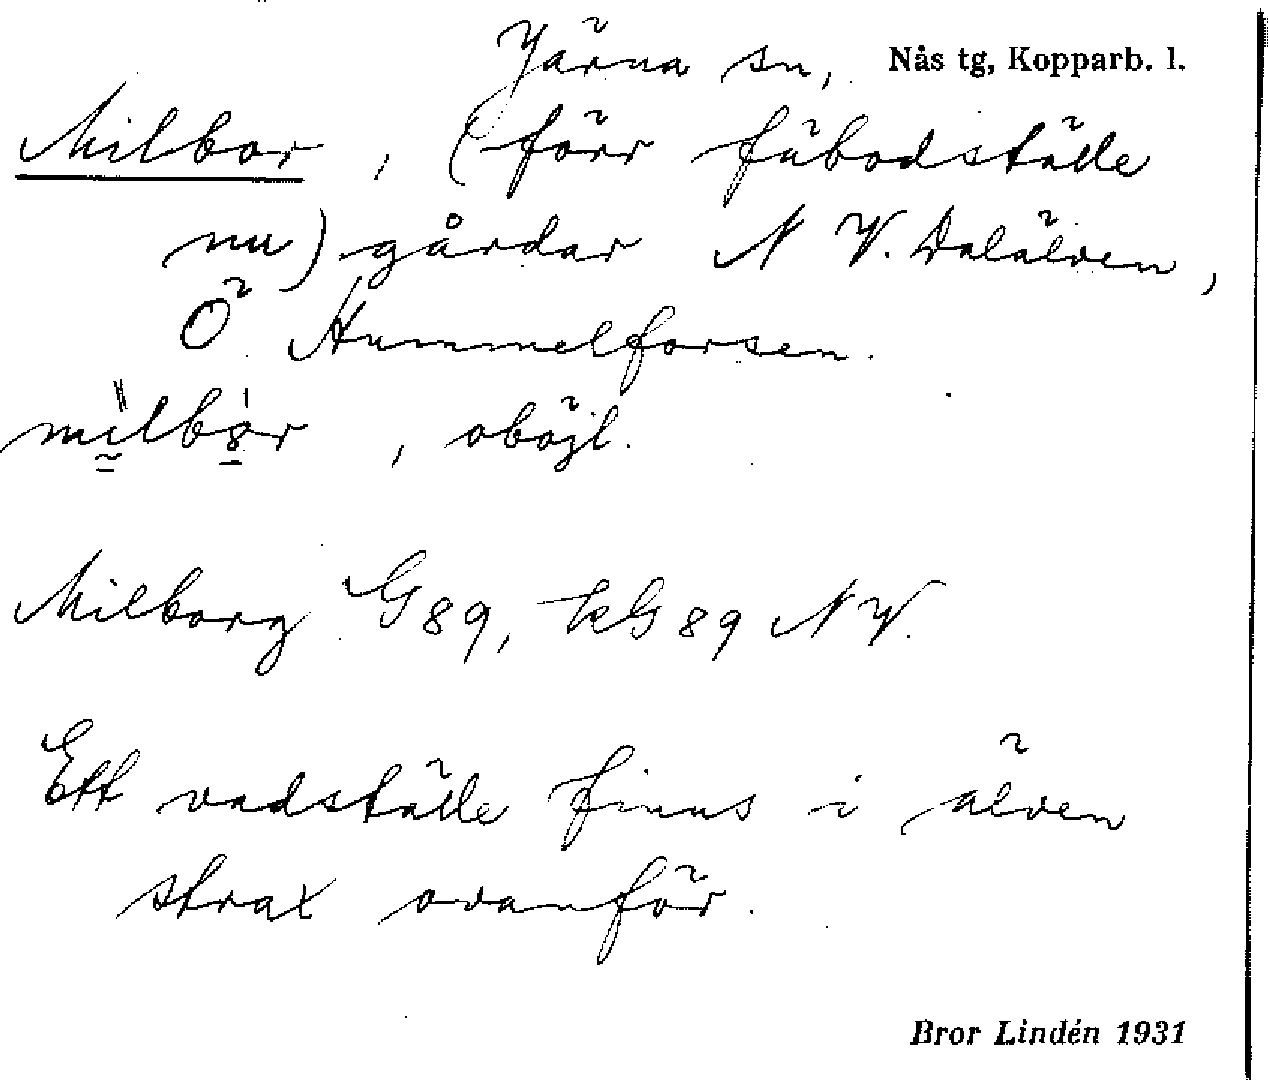 Järna sn, Nås tg, Kopparb. l.
Milbor, (förr fäbodställe
nu) gårdar N V. Dalälven,
Ö Hummelforsen.
, oböjl.
Milborg G89, kG89 NV.
Ett vadställe finns i älven
strax ovanför.
Bror Lindén 1931